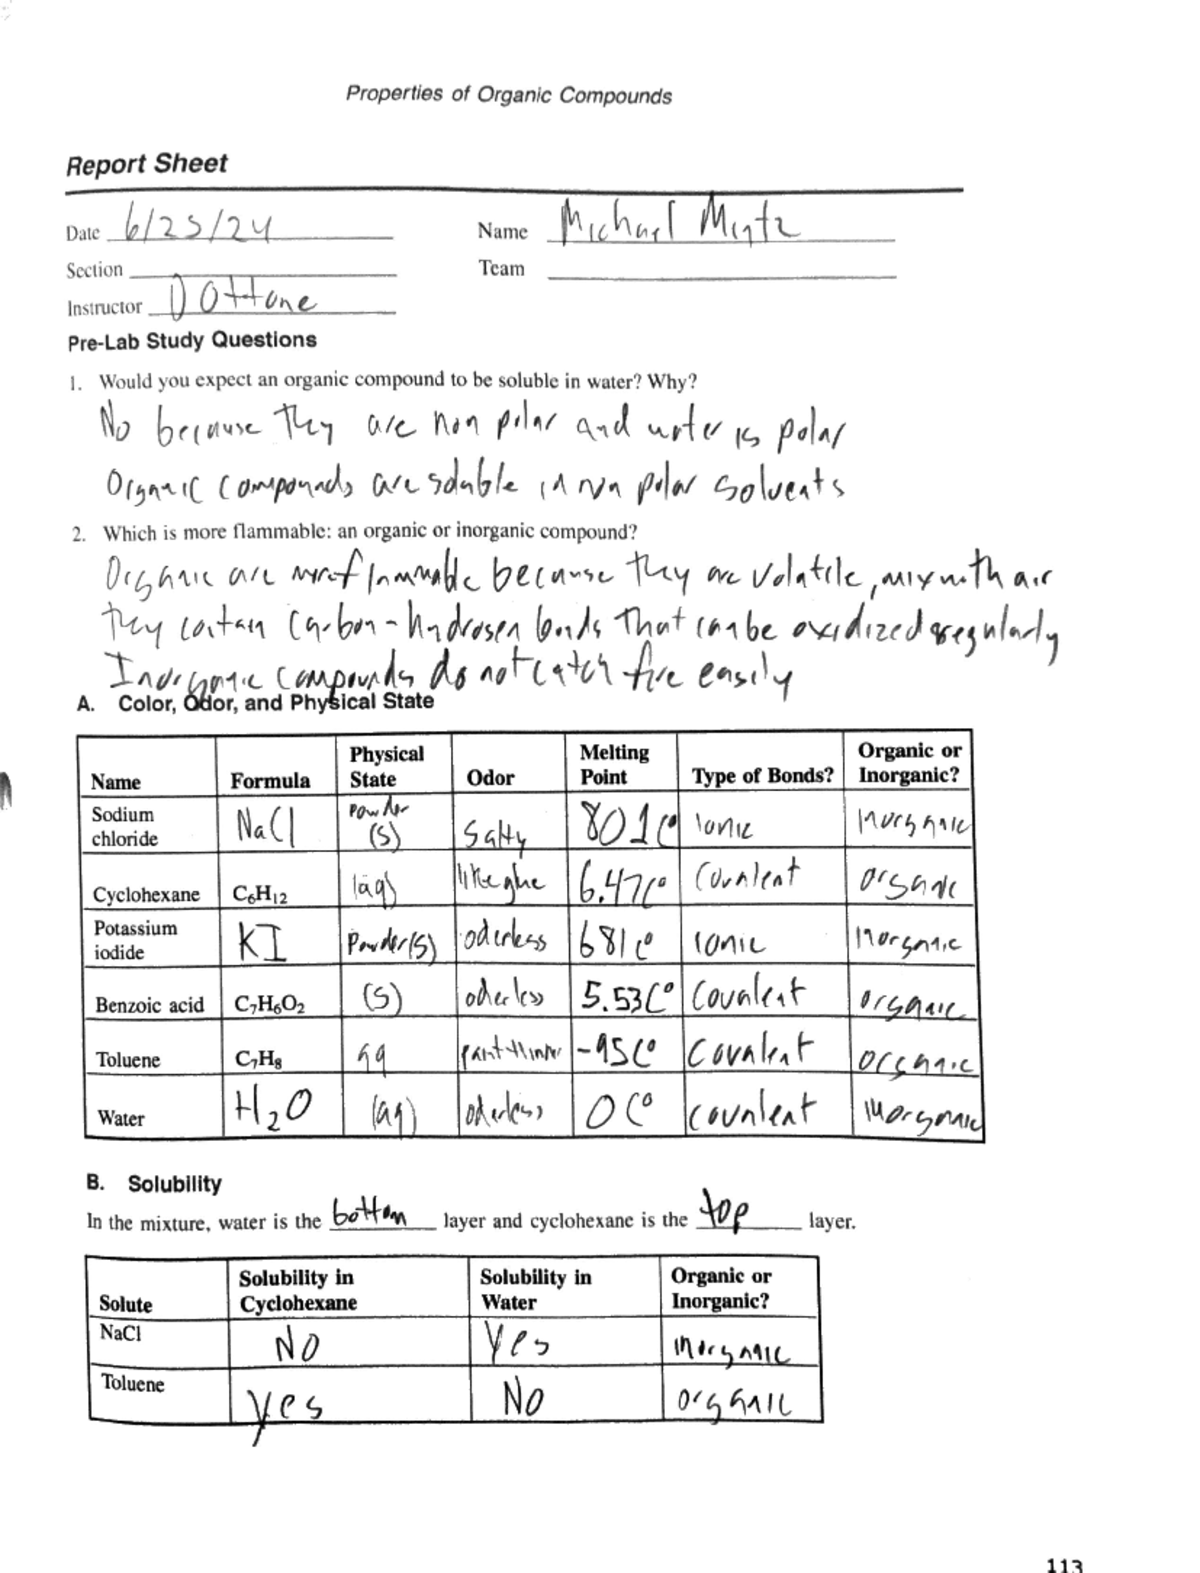 Properties of Organic Compounds
Report Sheet
Date 6/25/24 Name Michael Mintz
Section Team
Instructor DOttone
Pre-Lab Study Questions
1. Would you expect an organic compound to be soluble in water? Why?
No because they are non polar and water is polar
Organic compounds are soluble in non polar solvents
2. Which is more flammable: an organic or inorganic compound?
Organic are more flammable because they are volatile, mix with air
they contain carbon-hydrogen bonds that can be oxidized regularly
Inorganic compounds do not catch fire easily
A. Color, Odor, and Physical State
Name Formula Physical State Odor Melting Point Type of Bonds? Organic or Inorganic?
Sodium chloride NaCl powder (s) Salty 801C° ionic inorganic
Cyclohexane C6H12 (aq) like glue 6.47C° Covalent organic
Potassium iodide KI Powder(s) oderless 681C° ionic inorganic
Benzoic acid C7H6O2 (s) oderless 5.53C° Covalent organic
Toluene C7H8 aq paint thinner -95C° Covalent organic
Water H2O (aq) oderless 0C° covalent inorganic
B. Solubility
In the mixture, water is the bottom layer and cyclohexane is the top layer.
Solute Solubility in Cyclohexane Solubility in Water Organic or Inorganic?
NaCl No Yes inorganic
Toluene yes No organic
113